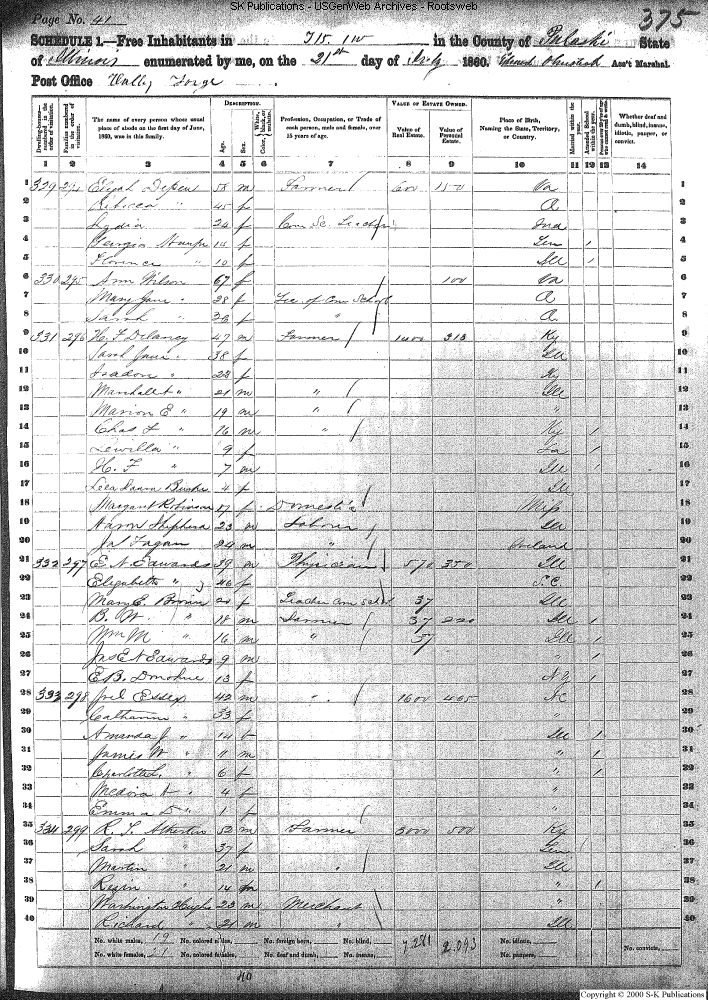 SK Publications - USGenWeb Archives - Rootsweb
Page No. 41
375
SCHEDULE 1.—Free Inhabitants in T15 1W in the County of Pulaski State
of Illinois enumerated by me, on the 21st day of July 1860. Ass't Marshal.
Post Office
Dwelling-houses— numbered in the order of visitation.
Families numbered in the order of visitation.
The name of every person whose usual place of abode on the first day of June, 1860, was in this family.
DESCRIPTION.
Age.
Sex.
Color, White, black, or mulatto.
Profession, Occupation, or Trade of each person, male and female, over 15 years of age.
VALUE OF ESTATE OWNED.
Value of Real Estate.
Value of Personal Estate.
Place of Birth, Naming the State, Territory, or Country.
Married within the year.
Attended School within the year.
Whether deaf and dumb, blind, insane, idiotic, pauper, or convict.
1 2 3 4 5 6 7 8 9 10 11 12 13 14
1 329 294 Elijah 58 m Farmer 600 150 Va 1
2 Rebecca " 45 f O. 2
3 Lydia " 24 f Com Sc. Teacher Ind 3
4 Georgia 14 f Ten / 4
5 Florence " 10 f Ill / 5
6 330 295 Ann Wilson 67 f 100 Va 6
7 Mary Jane " 28 f Com School O. 7
8 Sarah " f " O. 8
9 331 296 H. F Delaney 47 m Farmer 1400 313 Ky 9
10 Sarah Jane " 38 f Ill 10
11 Isadora " 23 f Ky 11
12 Marshall A " 21 m " Ill 12
13 Marion E " 19 m " " 13
14 Chas F " 16 m " Ky / 14
15 Lewilla " 9 f / 15
16 H. F " 7 m Ill / 16
17 4 f Ill 17
18 Margaret Robinson 17 f Domestic Miss 18
19 Aaron 23 m Laborer Ill 19
20 Jas Fagan 24 m " Ireland 20
21 332 297 E. N. Edwards 39 m Physician 570 350 Ill 21
22 Elizabeth " 46 f S.C. 22
23 Mary E. Brown 20 f Teacher Com School 37 Ill 23
24 B. W. " 18 m Farmer 37 220 Ill / 24
25 Wm M " 16 m " 37 Ill / 25
26 Jas E N Edwards 9 m " / 26
27 E. B. Donohue 13 f N.Y. / 27
28 333 298 Joel Essex 42 m " 1600 465 N.C 28
29 Catharine " 33 f " 29
30 Amanda J " 14 f Ill / 30
31 James W " 11 m " / 31
32 Charlotte L. " 6 f " / 32
33 Medora A " 4 f " 33
34 Emma D " 1 f " 34
35 334 299 R. S. Atherton 52 m Farmer 3000 500 Ky 35
36 Sarah " 37 f Ten 36
37 Martin " 21 m " Ill 37
38 Regin " 14 m " / 38
39 Washington Hughs 23 m Merchant " 39
40 Richard " 21 m " Ill 40
No. white males, 19 No. colored males, No. foreign born, No. blind, 7,281 2.093 No. idiotic,
No. white females, 21 No. colored females, No. deaf and dumb, No. insane, No. paupers, No. convicts,
40
Copyright © 2000 S-K Publications